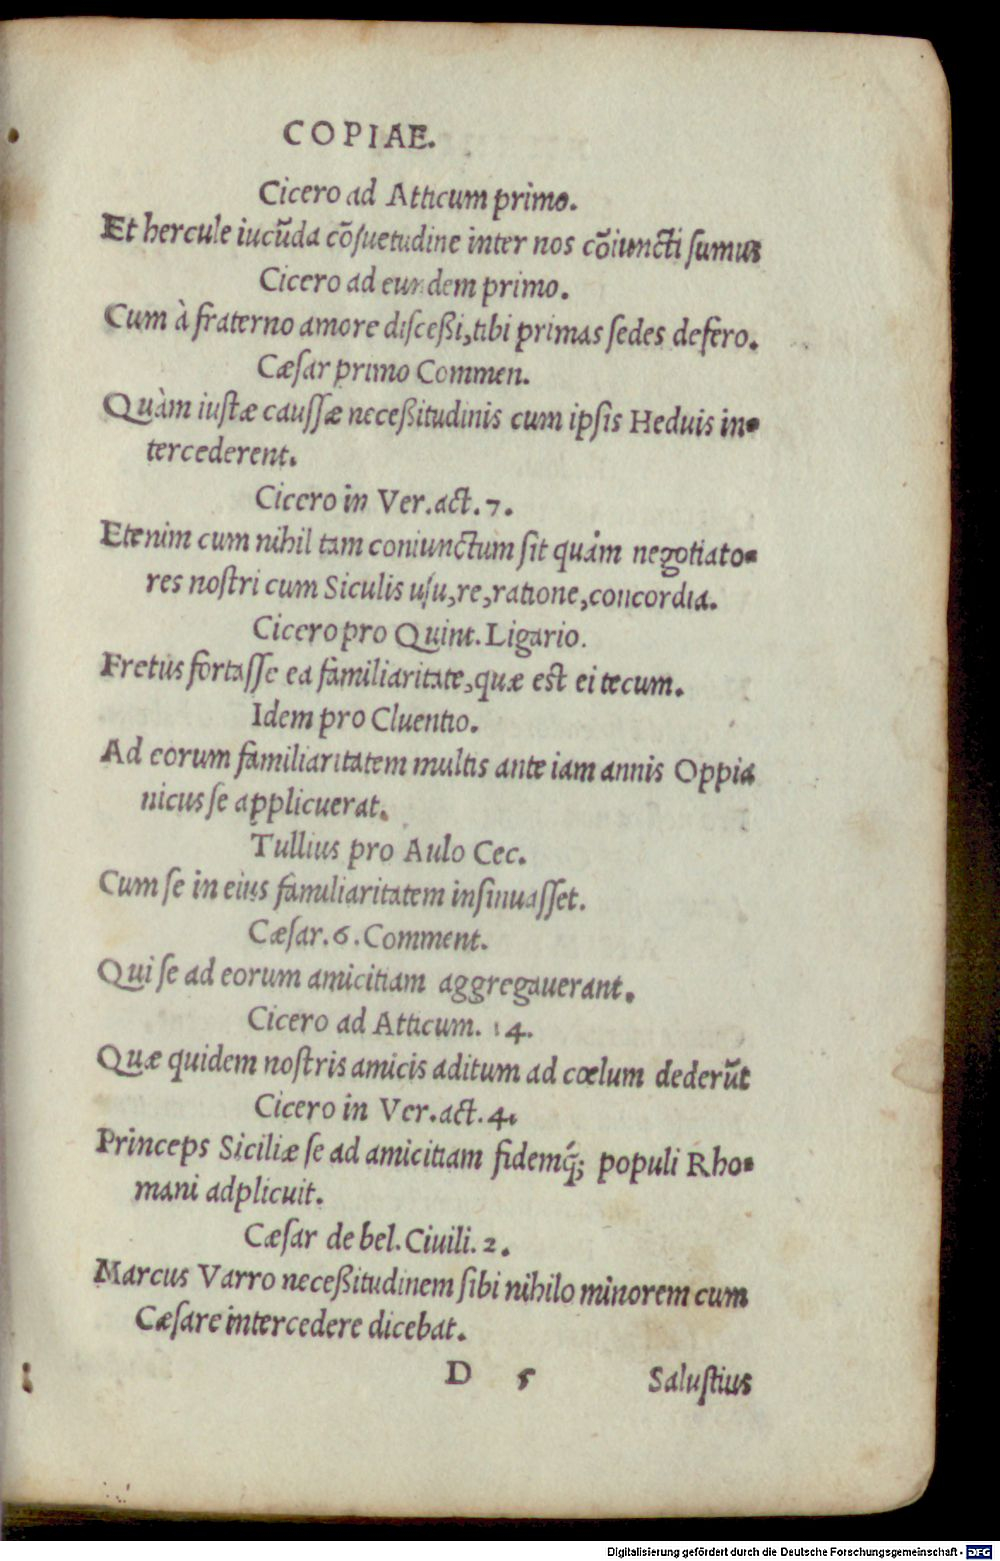 COPIAE.
Cicero ad Atticum primo.
Et hercule iucũda cõſuetudine inter nos cõiuncti ſumus
Cicero ad eundem primo.
Cum à fraterno amore diſceßi, tibi primas ſedes defero.
Cæſar primo Commen.
Quàm iuſtæ cauſſæ neceßitudinis cum ipſis Heduis in-
tercederent.
Cicero in Ver. act. 7.
Etenim cum nihil tam coniunctum ſit quàm negotiato-
res noſtri cum Siculis uſu, re, ratione, concordia.
Cicero pro Quint. Ligario.
Fretus fortaſſe ea familiaritate, quæ est ei tecum.
Idem pro Cluentio.
Ad eorum familiaritatem multis ante iam annis Oppia
nicus ſe applicuerat.
Tullius pro Aulo Cec.
Cum ſe in eius familiaritatem inſinuaſſet.
Cæſar. 6. Comment.
Qui ſe ad eorum amicitiam aggregauerant.
Cicero ad Atticum. 14.
Quæ quidem noſtris amicis aditum ad cœlum dederũt
Cicero in Ver. act. 4.
Princeps Siciliæ ſe ad amicitiam fidemq́; populi Rho-
mani adplicuit.
Cæſar de bel. Ciuili. 2.
Marcus Varro neceßitudinem ſibi nihilo minorem cum
Cæſare intercedere dicebat.
D 5 Saluſtius
Digitalisierung gefördert durch die Deutsche Forschungsgemeinschaft - DFG